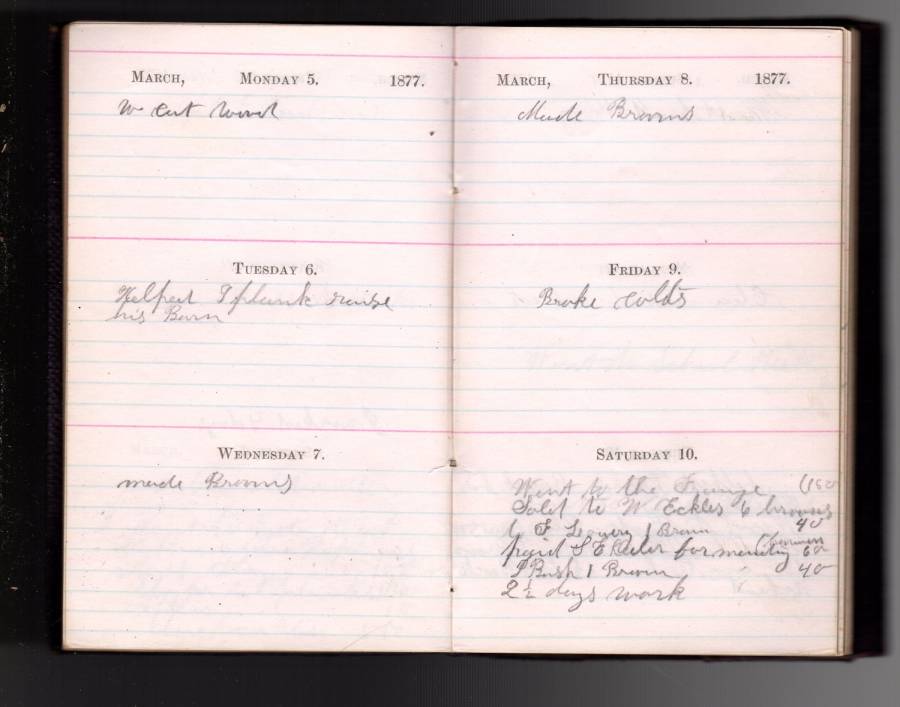 MARCH, MONDAY 5. 1877.
We Cut Wood
TUESDAY 6.
Helped plank raise
his Barn
WEDNESDAY 7.
made Brooms
MARCH, THURSDAY 8. 1877.
Made Brooms
FRIDAY 9.
Broke colts
SATURDAY 10.
Went to the Grange
Sold to W Eckles 6 brooms
1 Broom 40
paid S E for mending
Bush 1 Broom 40
2 ½ days work